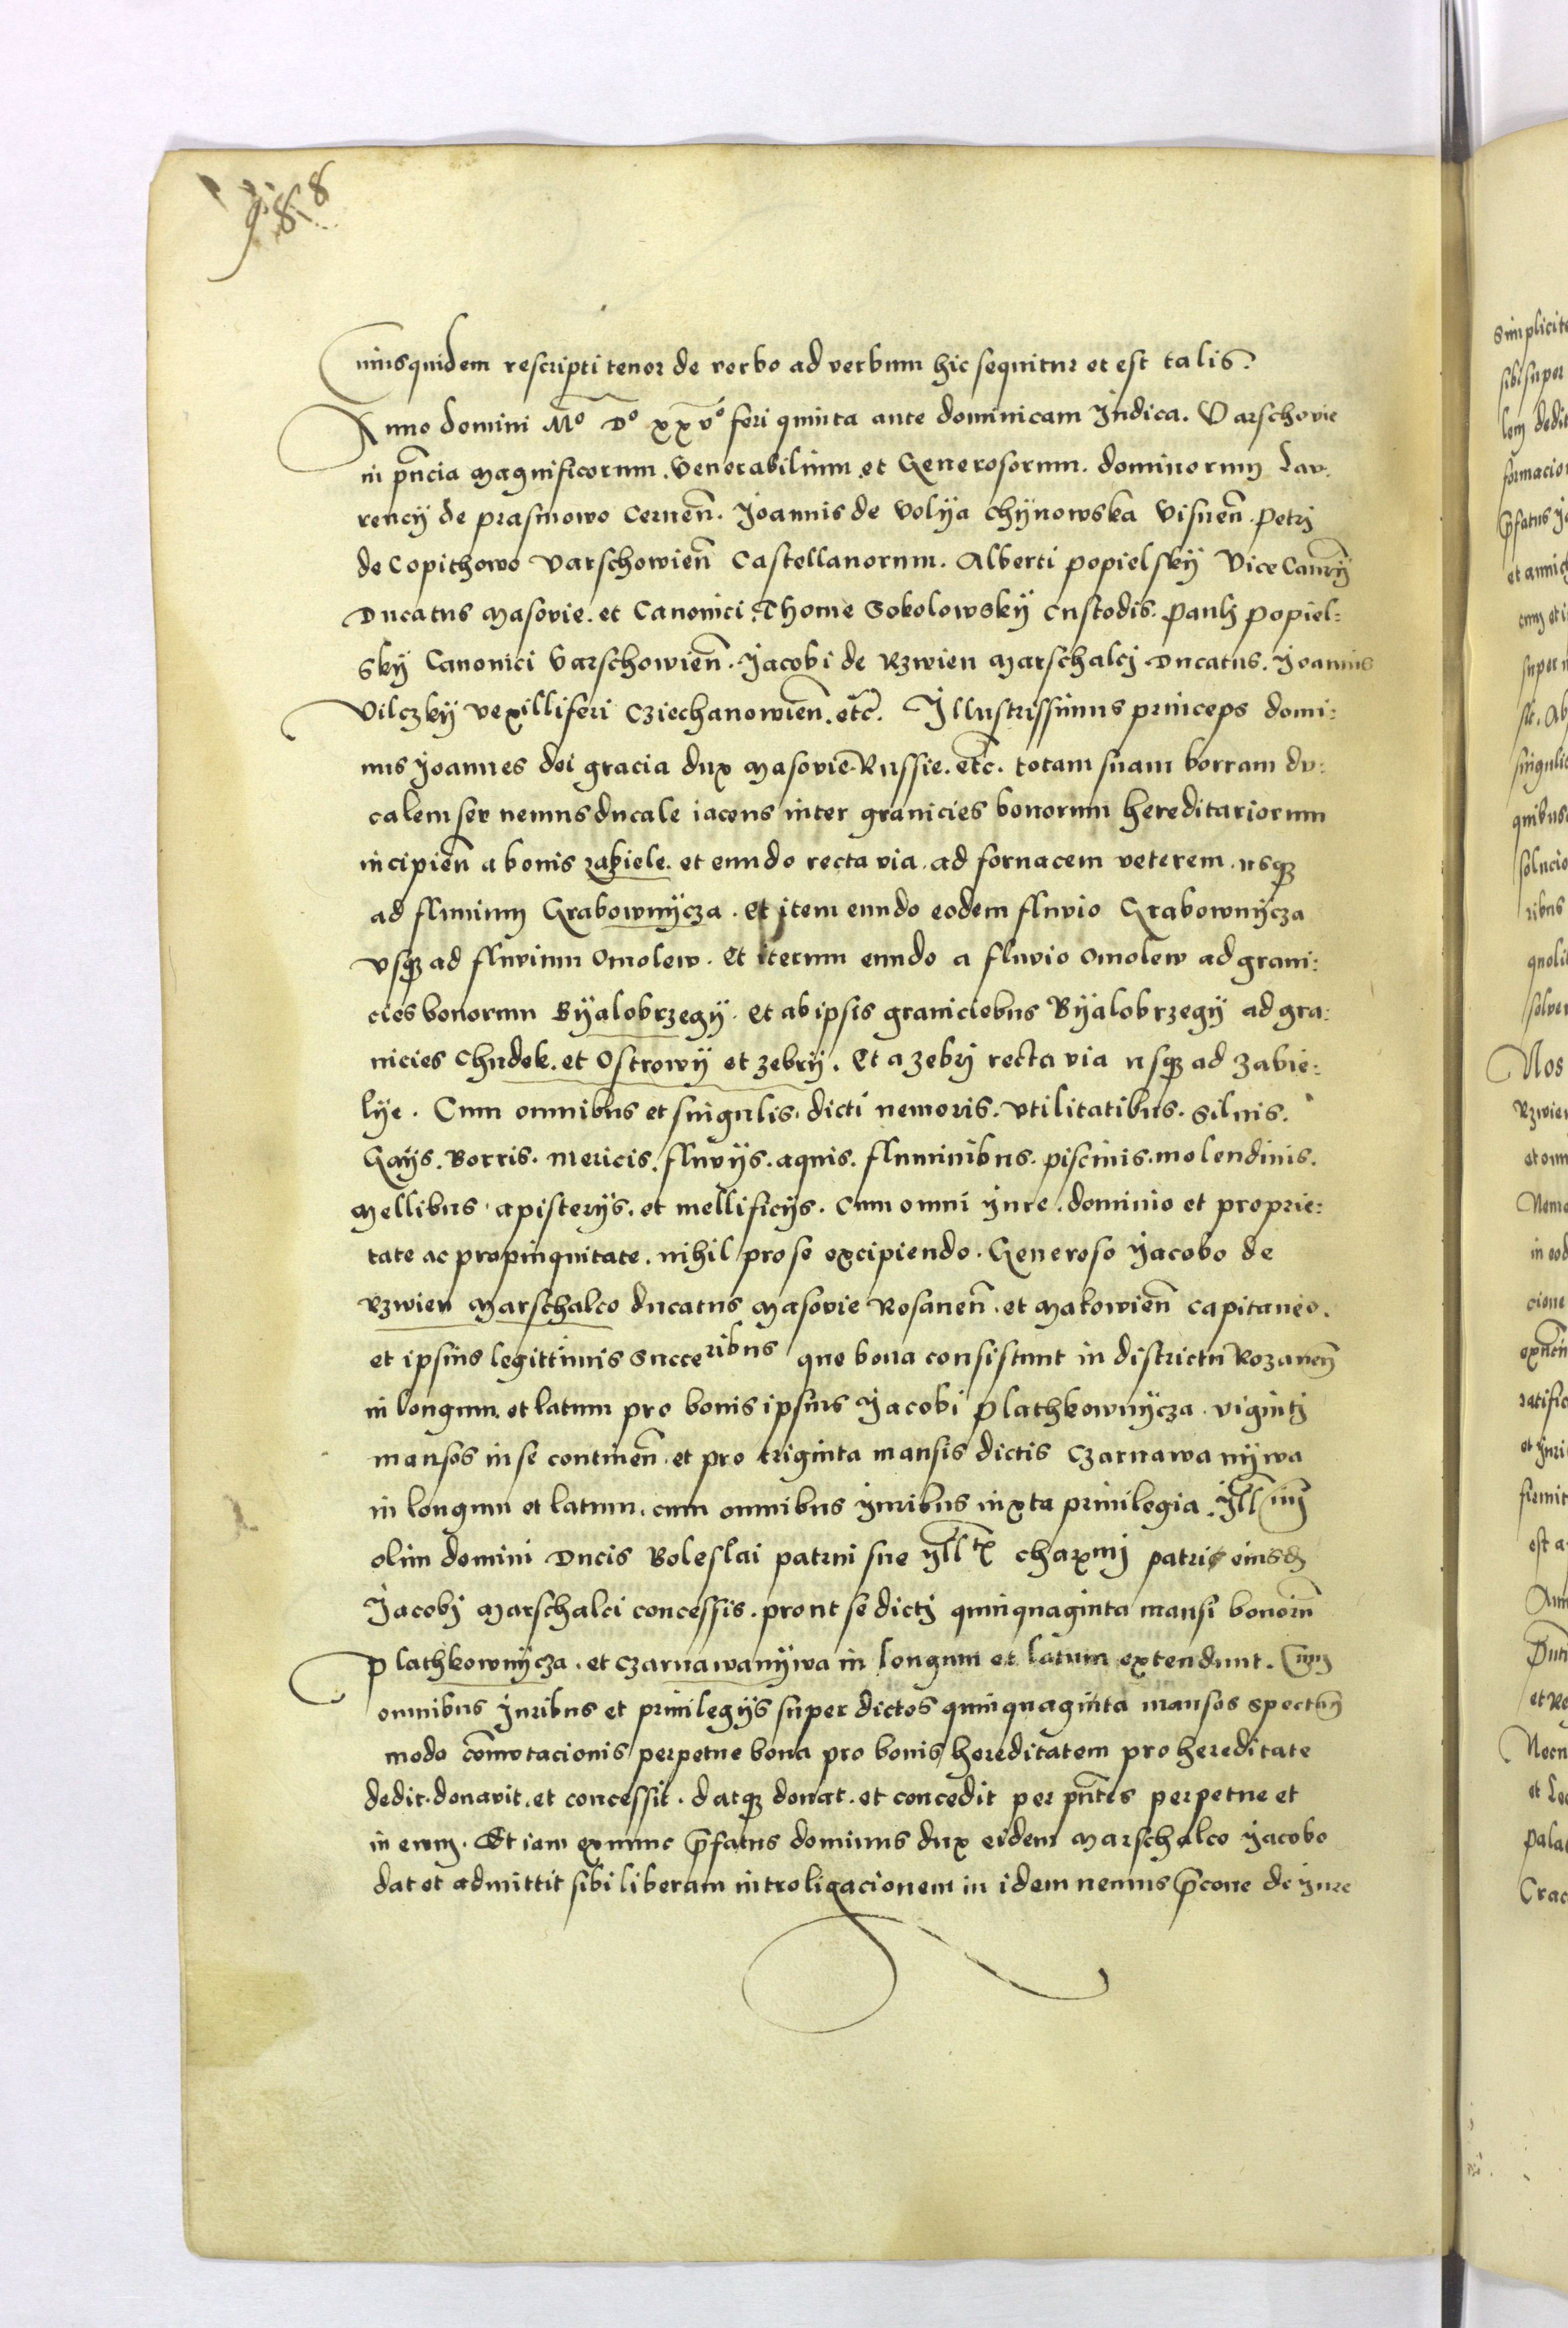 Cuiusquidem rescripti tenor de verbo ad verbum hic sequitur et est talis.
Anno domini M° D° xxv° feri quinta ante dominicam Judica. Varschovie
in pn̄cia magnificorum. Venerabilium. et Generosorum. dominorum Lav-
rencÿ de prasmowo Cernen̄. Joannis de Volÿa chÿnowska Visnen̄. petrj
de Copithowo Varschowien̄ Castellanorum. Alberti popielskÿ Vice Can̄rÿ
Ducatus Masovie. et Canonici. Thome Sokolowskÿ custodis. paulj popiel:
skÿ Canonici Varschowien̄. Jacobi de Rzwien Marschalcj Ducatus. Joannis
Vilczkÿ vexilliferi Cziechanowien̄. etc̄. Illustrissimus princeps domi:
nus Joannes dei gracia dux Masovie Russie. etc̄. totam suam borram du:
calem seu nemus ducale iacens inter granicies bonorum hereditariorum
incipien̄ a bonis zabiele. et eundo recta via. ad fornacem veterem. usqꝫ
ad fluuium Grabownÿcza. Et item eundo eodem fluvio Grabownÿcza
vsqꝫ ad fluvium Omolew. Et iterum eundo a fluvio Omolew ad grani:
cies bonorum Bÿalobrzegÿ. Et ab ipsis graniciebus Bÿalobrzegÿ ad gra:
nicies Chudek. et Ostrowÿ et zebrÿ. Et a zebrj recta via usqꝫ ad zabie:
lÿe. Cum omnibus et singulis. dicti nemoris. vtilitatibus. siluis.
Gaÿs. Borris. mericis. fluvÿs. aquis. fluminibus. piscinis. molendinis.
Mellibus. apisterÿs. et mellificÿs. Cum omni jure. dominio et proprie:
tate ac propinquitate. nihil pro se excipiendo. Generoso Jacobo de
Rzwien Marschalco ducatus Masovie Rosanen̄. et Makowien̄ capitaneo.
et ipsius legittimis succeribus que bona consistunt in districtu Rozanen̄
in longum. et latum pro bonis ipsius Jacobi Plathkownÿcza. vigintj
mansos in se continen̄. et pro triginta mansis dictis Czarnawa nÿwa
in longum et latum. cum omnibus juribus iuxta priuilegia. jll̄im̄j
olim domini Ducis Boleslai patrui sue jll̄t̄ꝭ charmj patris eiusd̄
Jacobj Marschalci concessis. prout se dictj quinquaginta mansi bonorū
Plathkownÿcza. et Czarnawanÿwa in longum et latum extendunt. Cum
omnibus juribus et priuilegÿs super dictos quinquaginta mansos spectan̄
modo com̄vtacionis perpetue bona pro bonis hereditatem pro hereditate
dedit. donavit. et concessit. datqꝫ donat. et concedit per pn̄tes perpetue et
in evum. Et iam exnunc p̄fatus dominus dux eidem Marschalco Jacobo
dat et admittit sibi liberam introligacionem in idem nemus p̄cone de jure